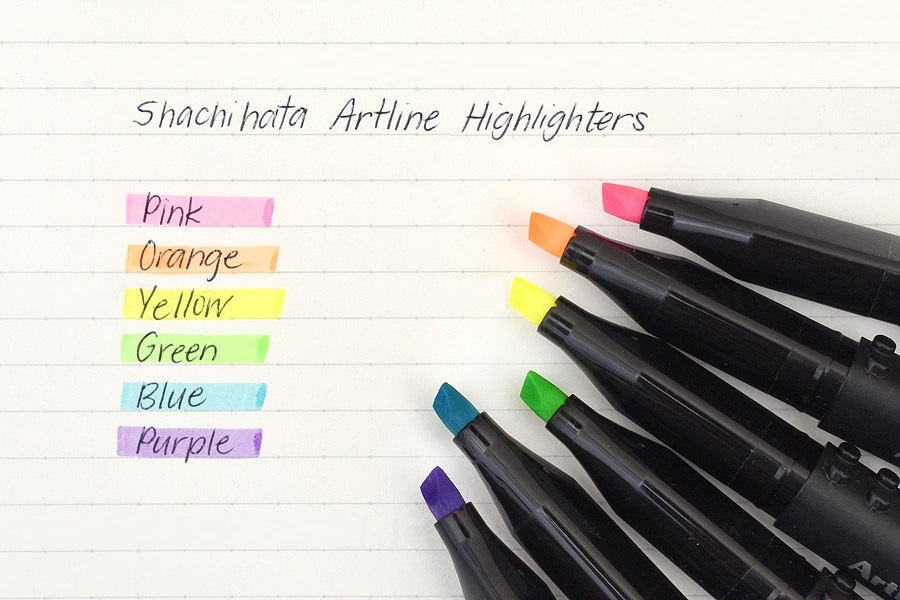 Shachihata Artline Highlighters
Pink
Orange
Yellow
Green
Blue
Purple
Art